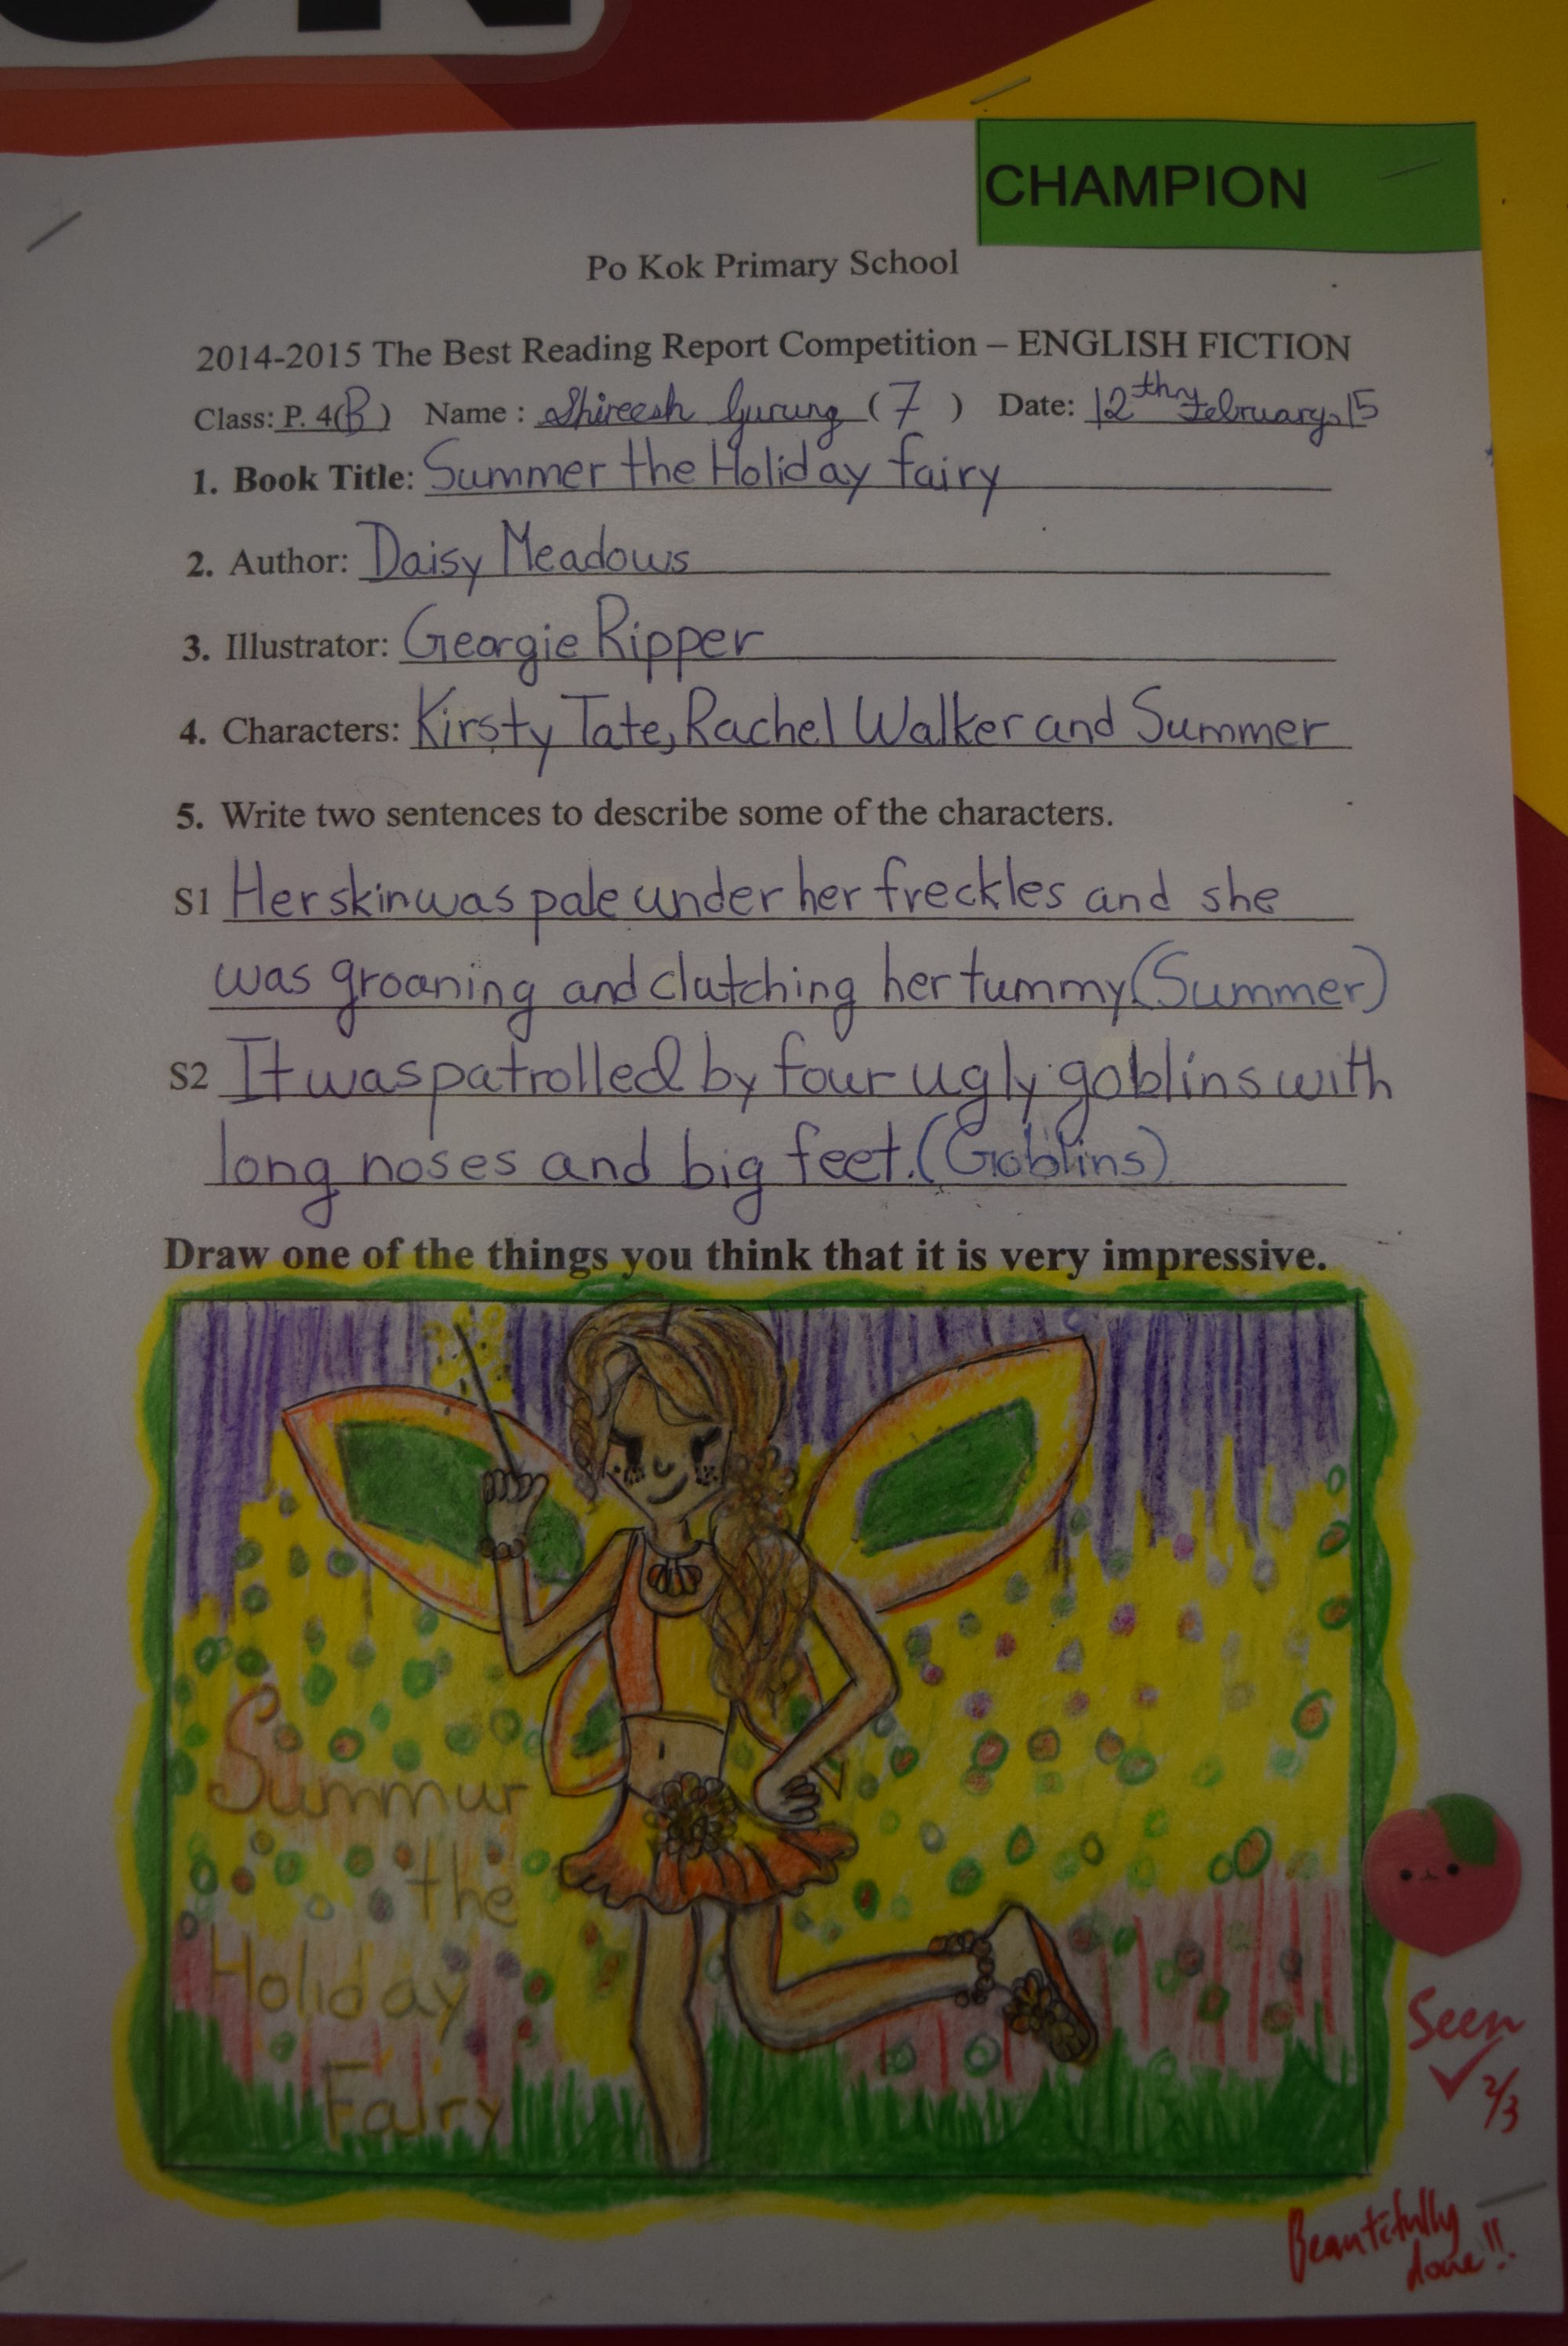 ON
CHAMPION
Po Kok Primary School
2014-2015 The Best Reading Report Competition – ENGLISH FICTION
Class: P. 4(B) Name : Shireesh Gurung (7) Date: 12th February, 15
1. Book Title: Summer the Holiday fairy
2. Author: Daisy Meadows
3. Illustrator: Georgie Ripper
4. Characters: Kirsty Tate, Rachel Walker and Summer
5. Write two sentences to describe some of the characters.
S1 Her skin was pale under her freckles and she
was groaning and clutching her tummy (Summer)
S2 It was patrolled by four ugly goblins with
long noses and big feet. (Goblins)
Draw one of the things you think that it is very impressive.
Summur
the
Holiday
Fairy
Seen
2/3
Beautifully
done!!